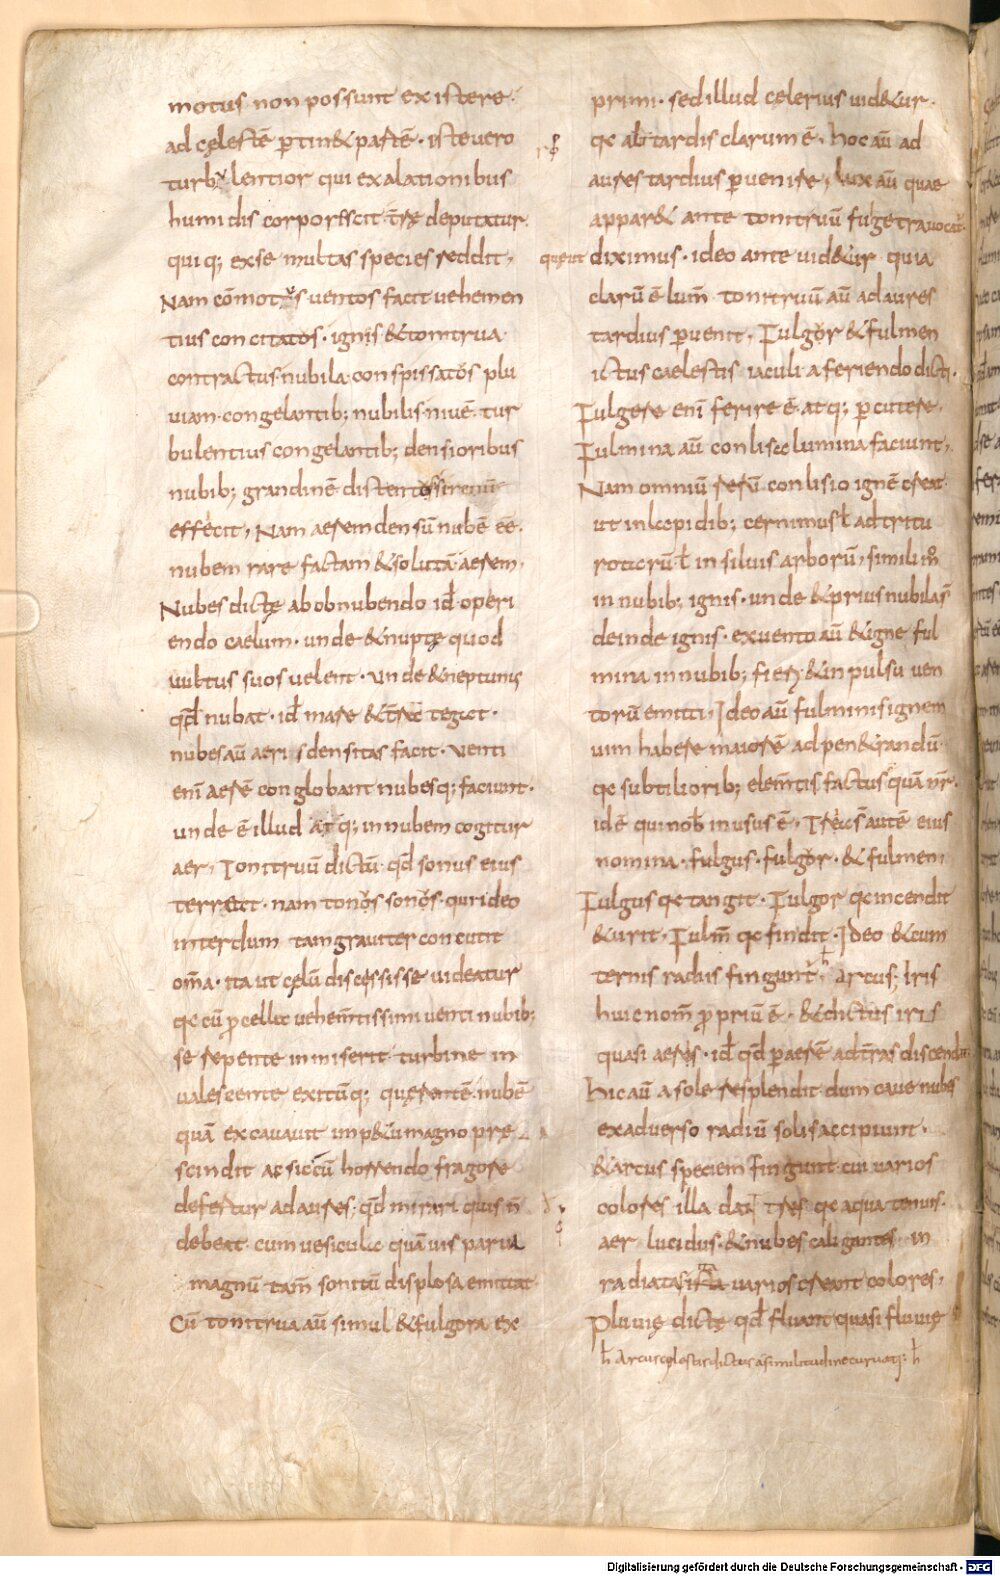 motus non possunt existere·
ad cęlestē ꝑtin& partē· iste uero
turbulentior qui exalationibus
humidis corporescit· t̄rę deputatur·
quiq; exse multas species reddit,
Nam cōmotus uentos facit uehemen
tius concitatos· ignis &tonitrua·
contractus nubila· conspissatos plu
uiam· congelantib; nubilis niuē· tur
bulentius congelantib; densioribus
nubib; grandinē
effecit, Nam aerem densū nubē eē·
nubem rare factam &solutā aerem,
Nubes dictę ab obnubendo id̄ operi
endo caelum· unde &nuptę quod
uultus suos uelent· unde &neptunus
qd̄ nubat· id̄ mare &t̄rā tegat·
nubes aū aeris densitas facit· uenti
enī aerē conglobant nubesq; faciunt·
unde ē illud atq; in nubem cogitur
aer, Tonitruū dictū qd̄ sonus eius
terreat· nam tonos sonos· qui ideo
interdum tam grauiter concutit
om̄a· ita ut cęlū discessisse uideatur
qa cū ꝓcella uehem̄tissimi uenti nubib;
se repente inmiserit· turbine in
ualescente exitūq; quęrentē· nubē
quā excauauit imp&u magno pre
scindit ac sic cū horrendo fragore
defertur ad aures· qd̄ mirari quis n̄
debeat· cum uesicula quāuis parua
magnū tam̄ sonitū displosa emittat
Cū tonitrua aū simul &fulgora ex
primi· sed illud celerius uid&ur·
qa clarum ē· hoc aū ad
aures tardius ꝑuenire, lux aū quae
appar& ante tonitruū fulgetra uocat̄·
quę ut diximus· ideo ante uid&ur quia
clarū ē lum̄· tonitruū aū ad aures
tardius ꝑuenit, Fulgor &fulmen
ictus caelestis iaculi a feriendo dicti·
Fulgere enī ferire ē atq; ꝑcutere,
Fulmina aū conlisa lumina faciunt,
Nam omniū rerū conlisio ignē creat
ut in lapidib; cernimus ł adtritu
rotarū ł in siluis arborū, simili m̊
in nubib; ignis· unde &prius nubila s̄
deinde ignis· exuento aū &igne ful
mina in nubib; fieri &inpulsu uen
torū emitti, Ideo aū fulminis ignem
uim habere maiorē ad pen&randū·
qa subtiliorib; elem̄tis factus quā nr̄·
id ē qui nob̄ in usus ē, Tria s̄ autē eius
nomina· fulgus· fulgor· &fulmen,
Fulgus qa tangit· Fulgor qa incendit
&urit· Fulm̄ qa findit· Ideo &cum
ternis radiis fingunt̄· Arcus; Iris
huic nom̄ ꝓpriū ē· &dictus iris
quasi aeris· id̄ qd̄ ꝑ aerē ad t̄ras discendit
hic aū a sole resplendit dum caue nubes
exaduerso radiū solis accipiunt·
&arcus speciem fingunt cui uarios
colores illa dat res qa aqua tenuis·
aer lucidus· &nubes caligantes in
radiata uarios creant colores,
Pluuię dictę qd̄ fluant quasi fluuię
h̄ Arcus cęlestis dictus a similitudine curuati· h̄
Digitalisierung gefördert durch die Deutsche Forschungsgemeinschaft - DFG